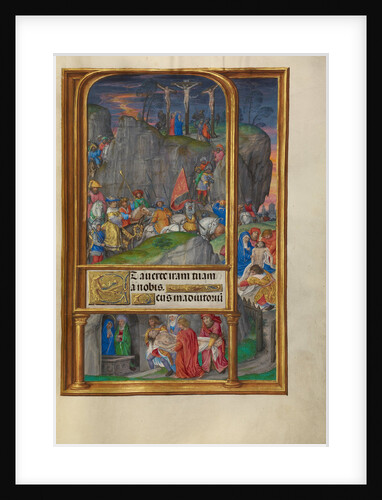 Et averte iram tuam
a nobis.
Deus in adiutoriū